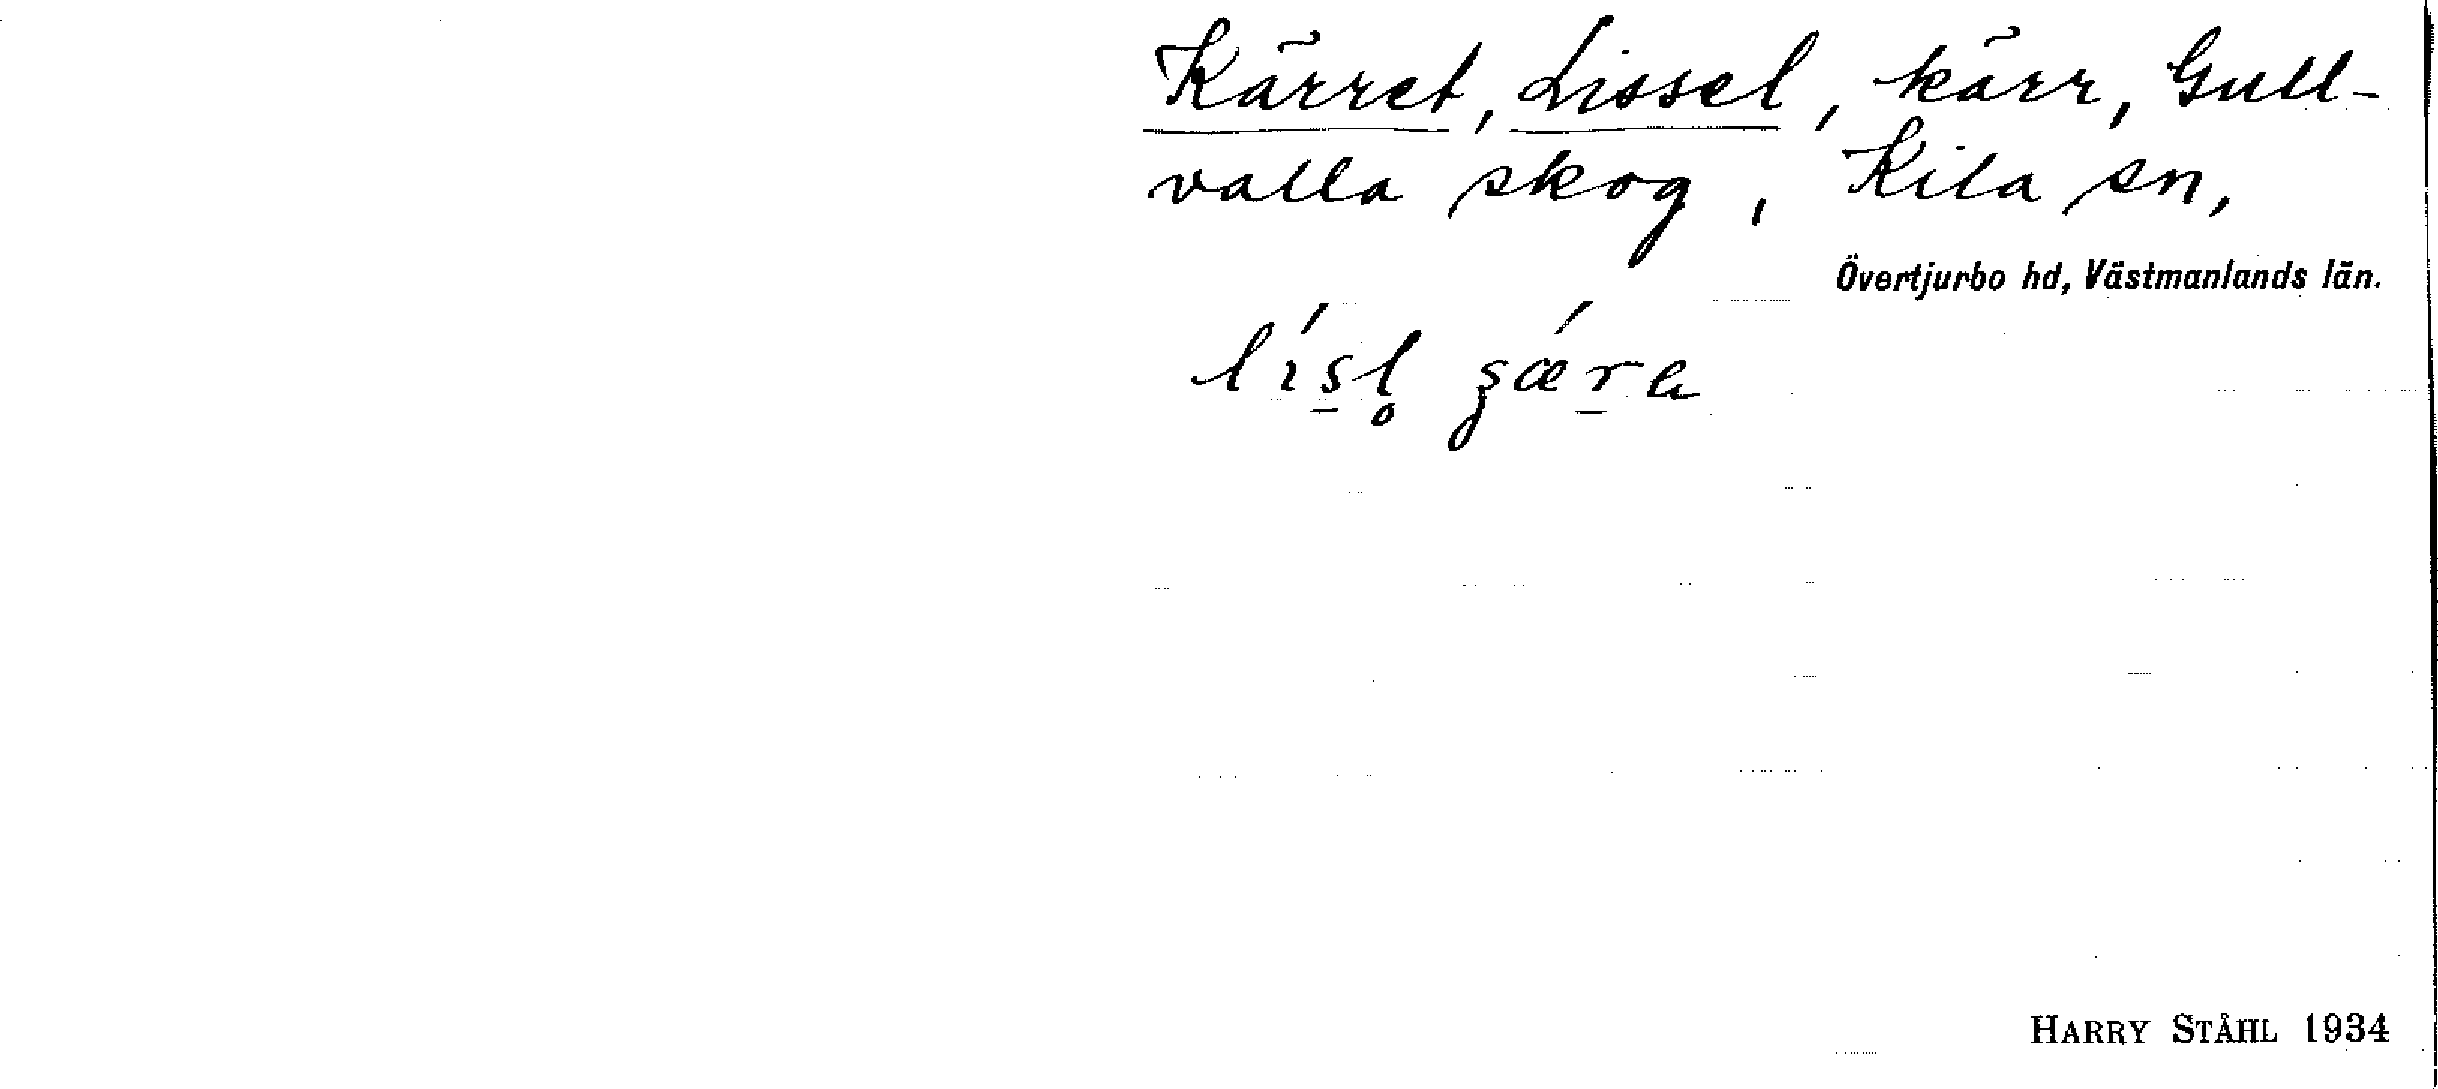 Kärret, Lissel, kärr, Gull-
valla skog, Kila sn,
Övertjurbo hd, Västmanlands län.
lı́s̠l̥ ʂǽr̠a
HARRY STÅHL 1934